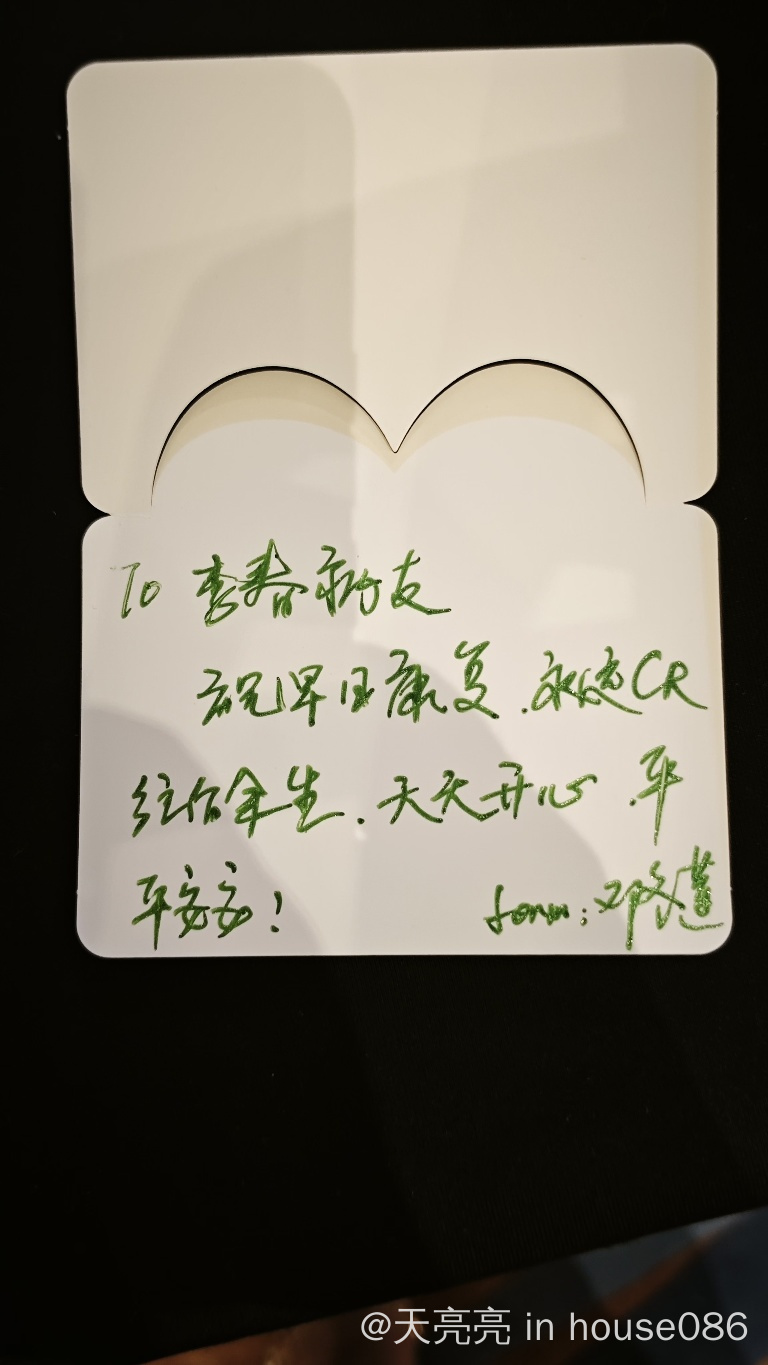 To 李春新友
祝早日康复.永远CR
往后余生.天天开心.平
平安安!
form:邓
@天亮亮 in house086